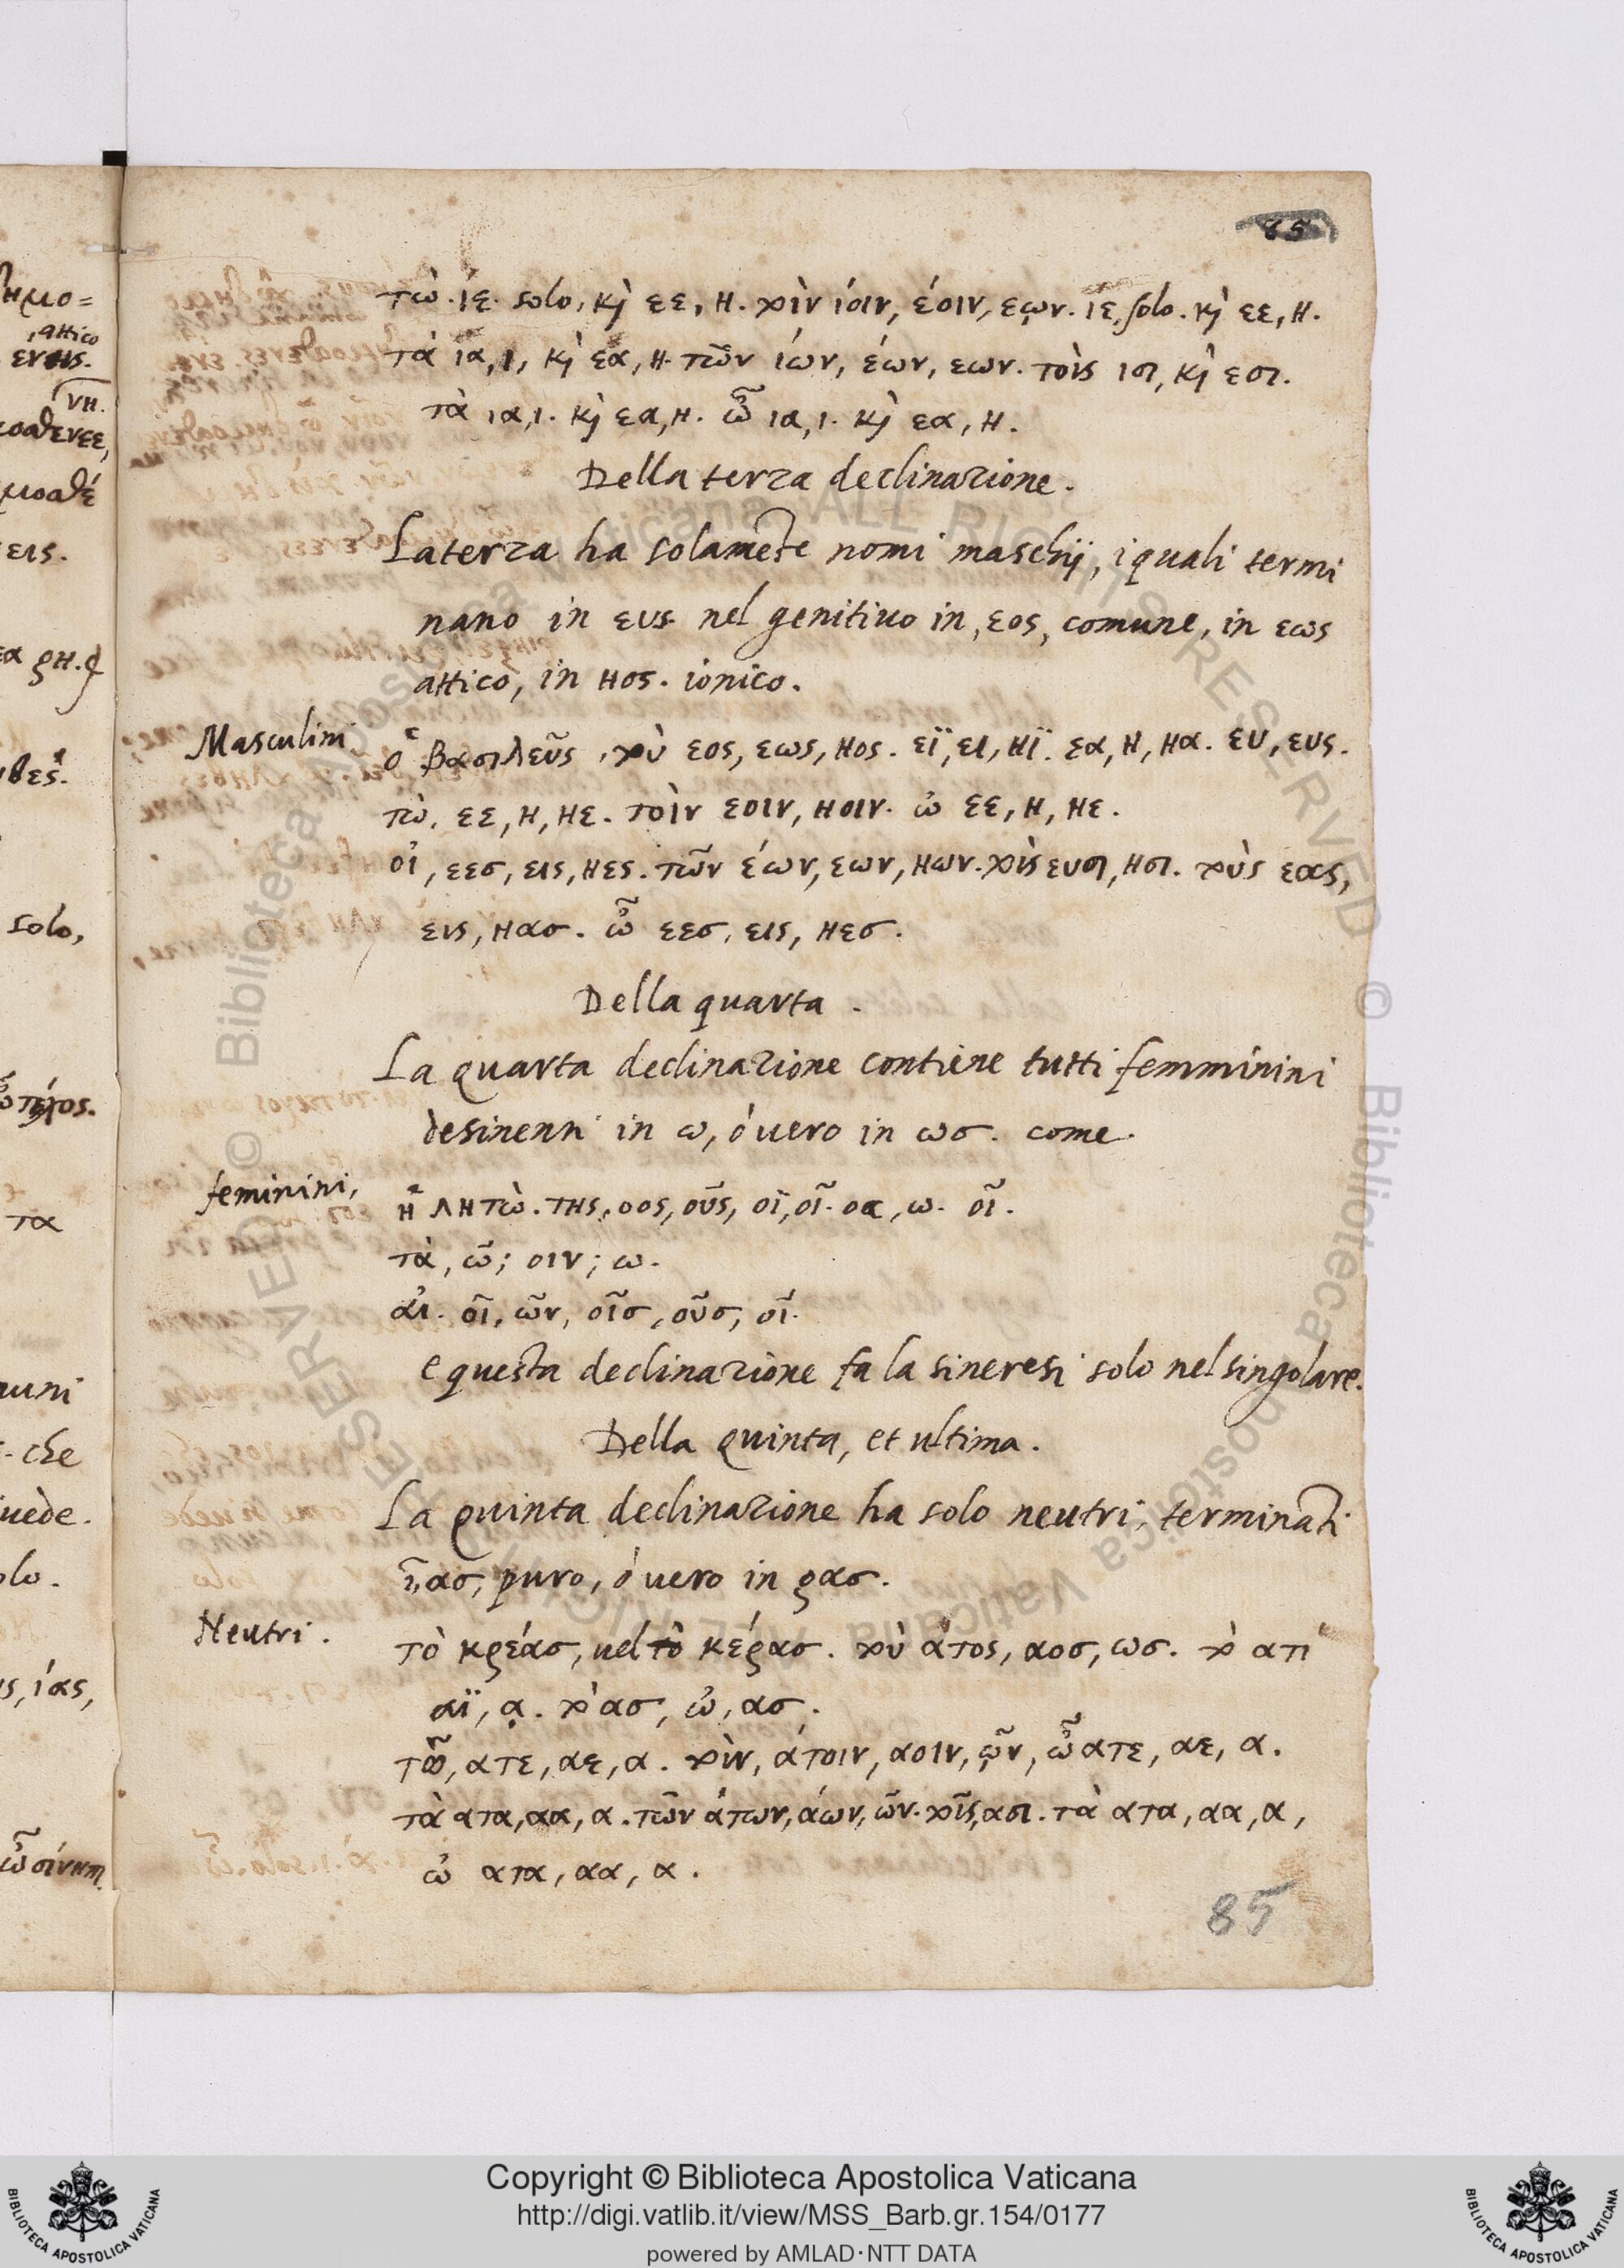 85
τὼ. ίε. solo, κὶ εε, η. τοὶν ίοιν, έοιν, εῳν. ιε, solo. κὶ εε, η.
τὰ ια, ι, κὶ εα, η. τῶν ίων, έων, εων. τοὶς ισι, κὶ εσι.
τὰ ια, ι. κὶ εα, η. ὦ ια, ι. κὶ εα, η.
Della terza declinazione.
La terza ha solamēte nomi maschij, i quali termi
nano in ευς nel genitiuo in, εος, comune, in εως
attico, in ηος. ionico.
Masculini
ὁ βασιλεῦς, τοὺ εος, εως, ηος. εϊ, ει, ηϊ. εα, η, ηα. ευ, ευς.
τὼ, εε, η, ηε. τοὶν εοιν, ηοιν. ὦ εε, η, ηε.
οἱ, εεσ, εις, ηες. τῶν έων, εων, ηων. τοὶς ευσι, ησι. τοὺς εας,
εις, ηασ. ὦ εεσ, εις, ηεσ.
Della quarta.
La quarta declinazione contiene tutti femminini
desinenti in ω, ó uero in ωσ. come.
feminini,
ἡ λητὼ. της, οος, οῦς, οϊ, οῖ. οα, ω. οῖ.
τὰ, ῶ; οιν; ω.
αἱ. οῖ, ῶν, οῖσ, οῦσ, οῖ.
e questa declinazione fa la sineresi solo nel singolare.
Della quinta, et ultima.
La quinta declinazione ha solo neutri, terminati
ī, ασ, puro, ó uero in ρασ.
Neutri.
τὸ κρέασ, uel τὸ κέρασ. τοὺ άτος, αοσ, ωσ. τὸ ατι
αϊ, ᾳ. τὸ ασ, ὦ, ασ.
τῶ, ατε, αε, α. τοὶν, άτοιν, αοιν, ῷν, ὦ ατε, αε, α.
τὰ ατα, αα, α. τῶν άτων, άων, ῶν. τοῖς, ασι. τὰ ατα, αα, α,
ὦ ατα, αα, α.
85
Copyright © Biblioteca Apostolica Vaticana
http://digi.vatlib.it/view/MSS_Barb.gr.154/0177
powered by AMLAD·NTT DATA